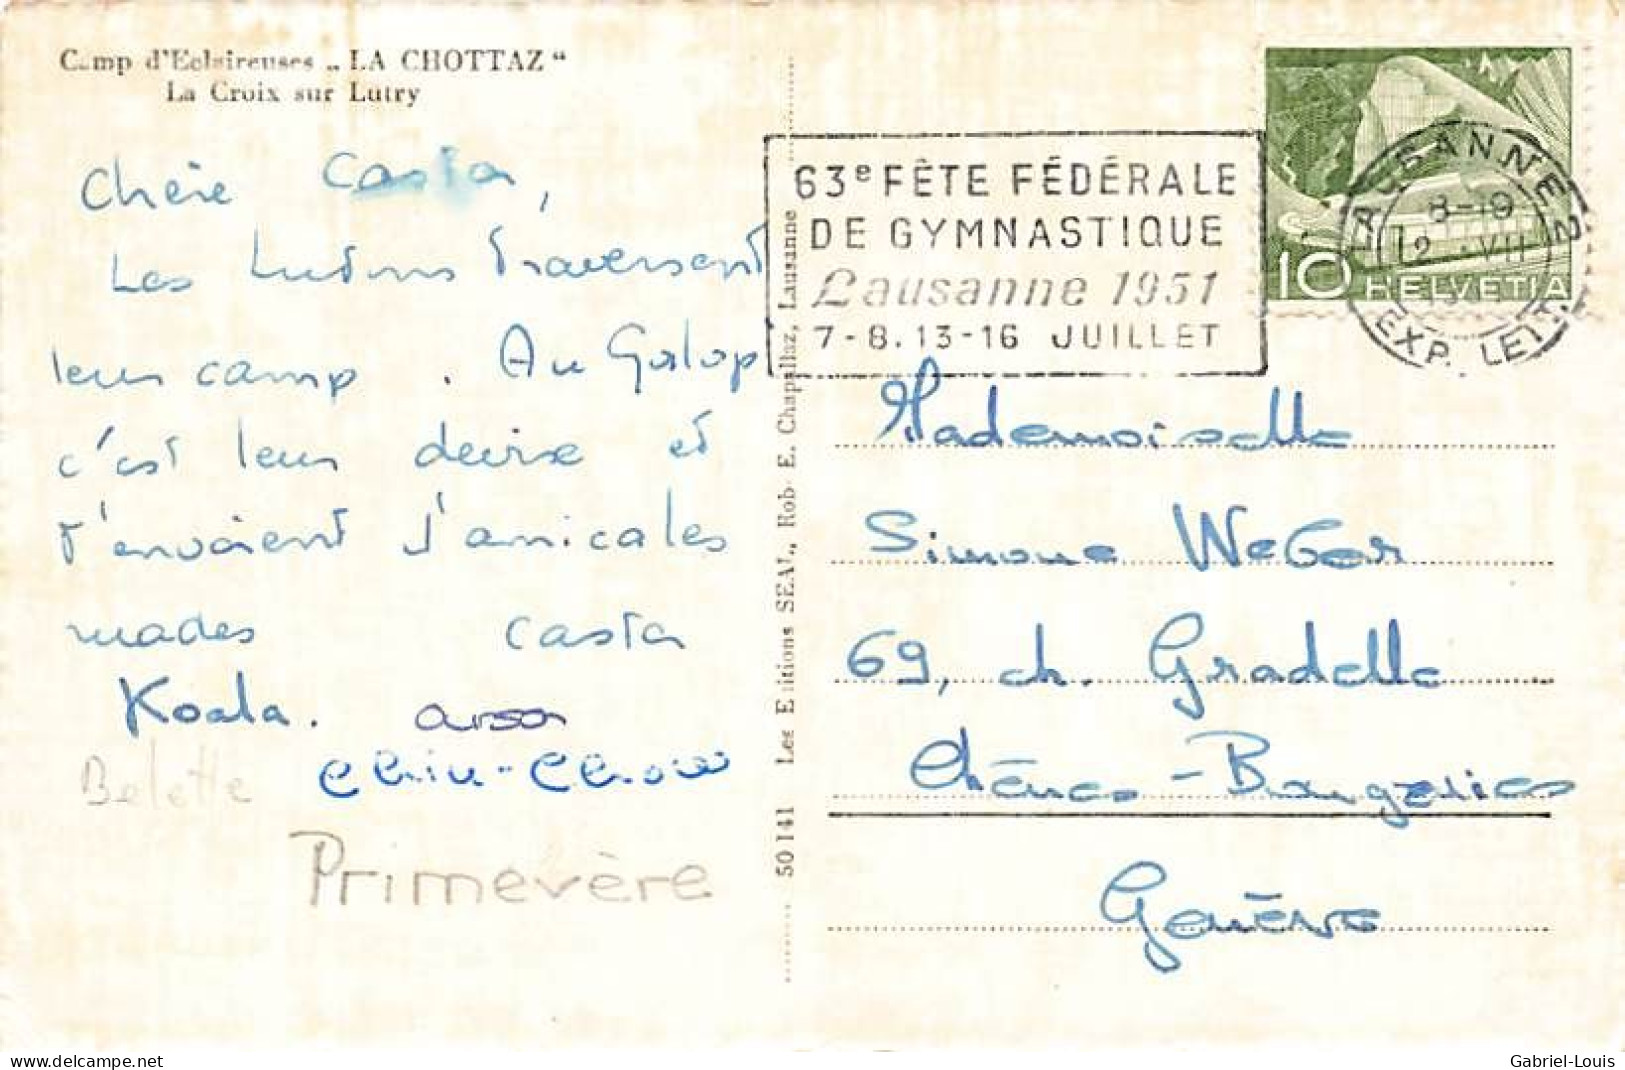 Camp d'Eclaireuses „LA CHOTTAZ“
La Croix sur Lutry
Chère Casta,
Les lutins traversent
leur camp. Au Galop
c'est leur devise et
t'envoient d'amicales
Casta
Koala.
Belette
Primevère
50141 Les Editions SEAL, Rob. E. Chapallaz, Lausanne
63e FÊTE FÉDÉRALE
DE GYMNASTIQUE
Lausanne 1951
7-8. 13-16 JUILLET
10 HELVETIA
LAUSANNE 2
8-19
12. VII
EXP. LETT.
Mademoiselle
Simone Weber
69, ch. Gradelle
Chênes-Bougeries
Genève
delcampe.net
Gabriel-Louis